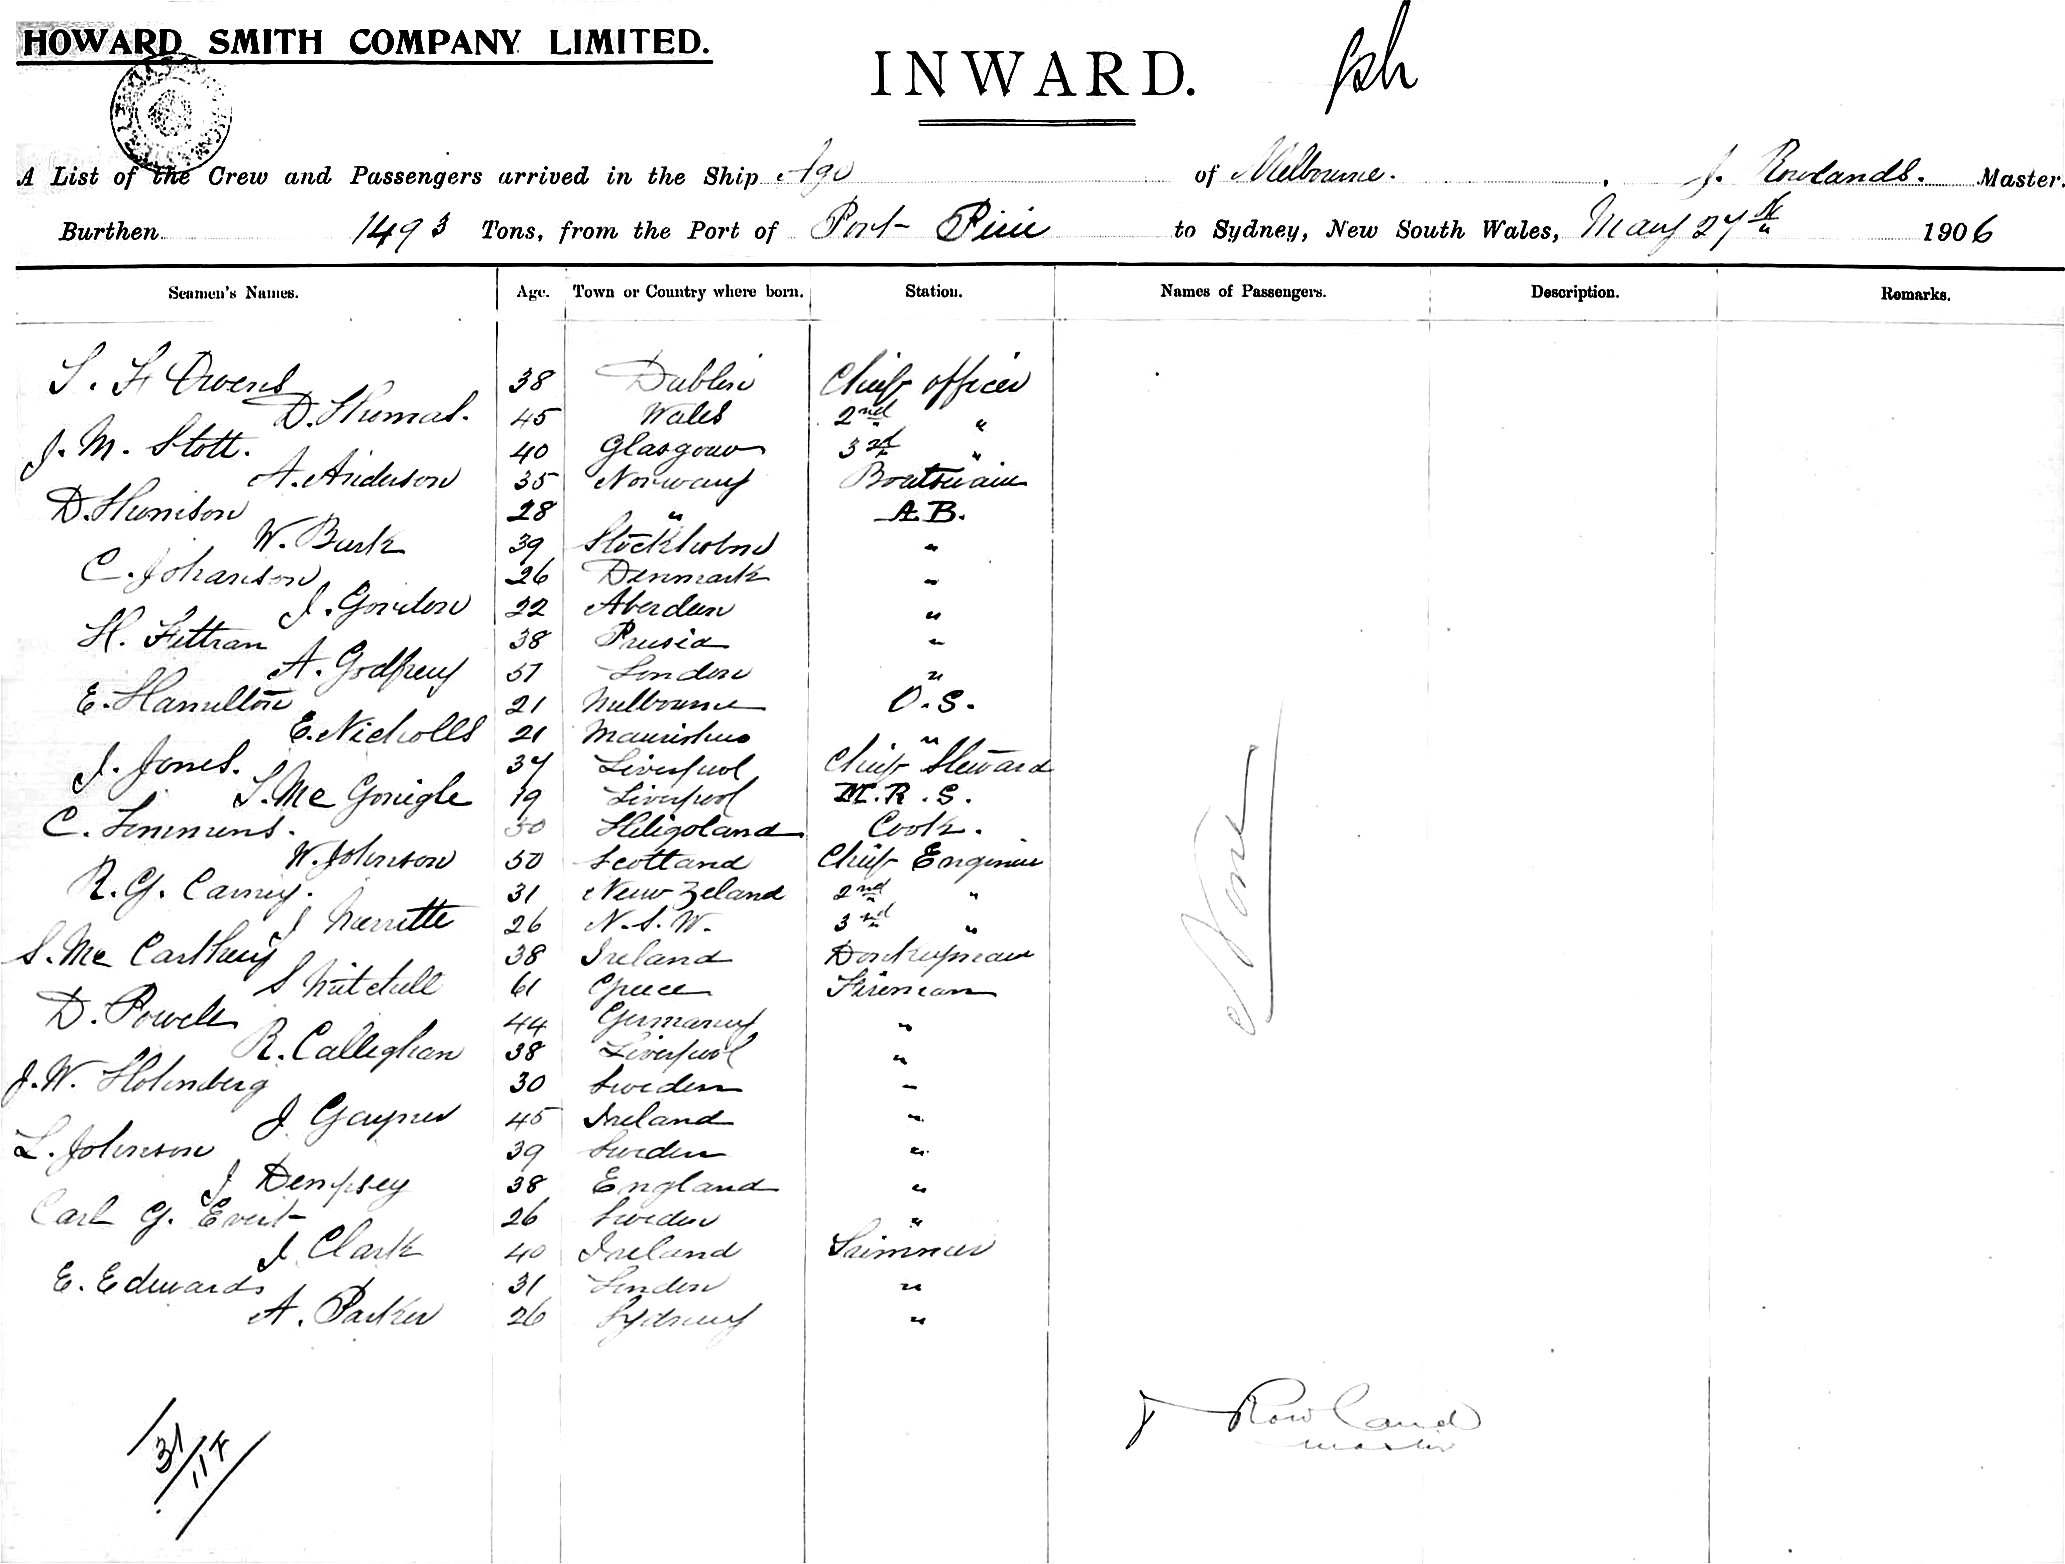 HOWARD SMITH COMPANY LIMITED.
INWARD.
A List of the Crew and Passengers arrived in the Ship Age of Melbourne. J. Rowlands. Master.
Burthen 1493 Tons, from the Port of Port Pirie to Sydney, New South Wales, May 27th 1906
Seamen's Names. Age. Town or Country where born. Station. Names of Passengers. Description. Remarks.
S. F. Owens 38 Dublin Chief officer
D. Thomas. 45 Wales 2nd "
J. M. Stott. 40 Glasgow 3rd "
A. Anderson 35 Norway Boatswain
D. Hunison 28 " A.B.
W. Burk 39 Stockholm "
C. Johanson 26 Denmark "
J. Gordon 22 Aberdeen "
H. Fettran 38 Prusia "
A. Godfrey 51 London "
E. Hamilton 21 Melbourne O.S.
E. Nicholls 21 Mauritius "
J. Jones. 37 Liverpool Chief Steward
S. Mc Gonigle 19 Liverpool M.R.S.
C. Simmens. 50 Heligoland Cook.
W. Johnson 50 Scotland Chief Engineer
R. G. Carney. 31 New Zeland 2nd "
J 26 N.S.W. 3rd "
S. Mc Carthey 38 Ireland Donkeyman
S Mitchell 61 Greece Fireman
D. Powell 44 Germany "
R. Calleghan 38 Liverpool "
J. W. Holmberg 30 Sweden "
J Gaynor 45 Ireland "
L. Johnson 39 Sweden "
J Dempsey 38 England "
Carl G. Evert 26 Sweden "
J. Clark 40 Ireland Trimmer
E. Edwards 31 London "
A. Parker 26 Sydney "
None
J Rowland
master
31